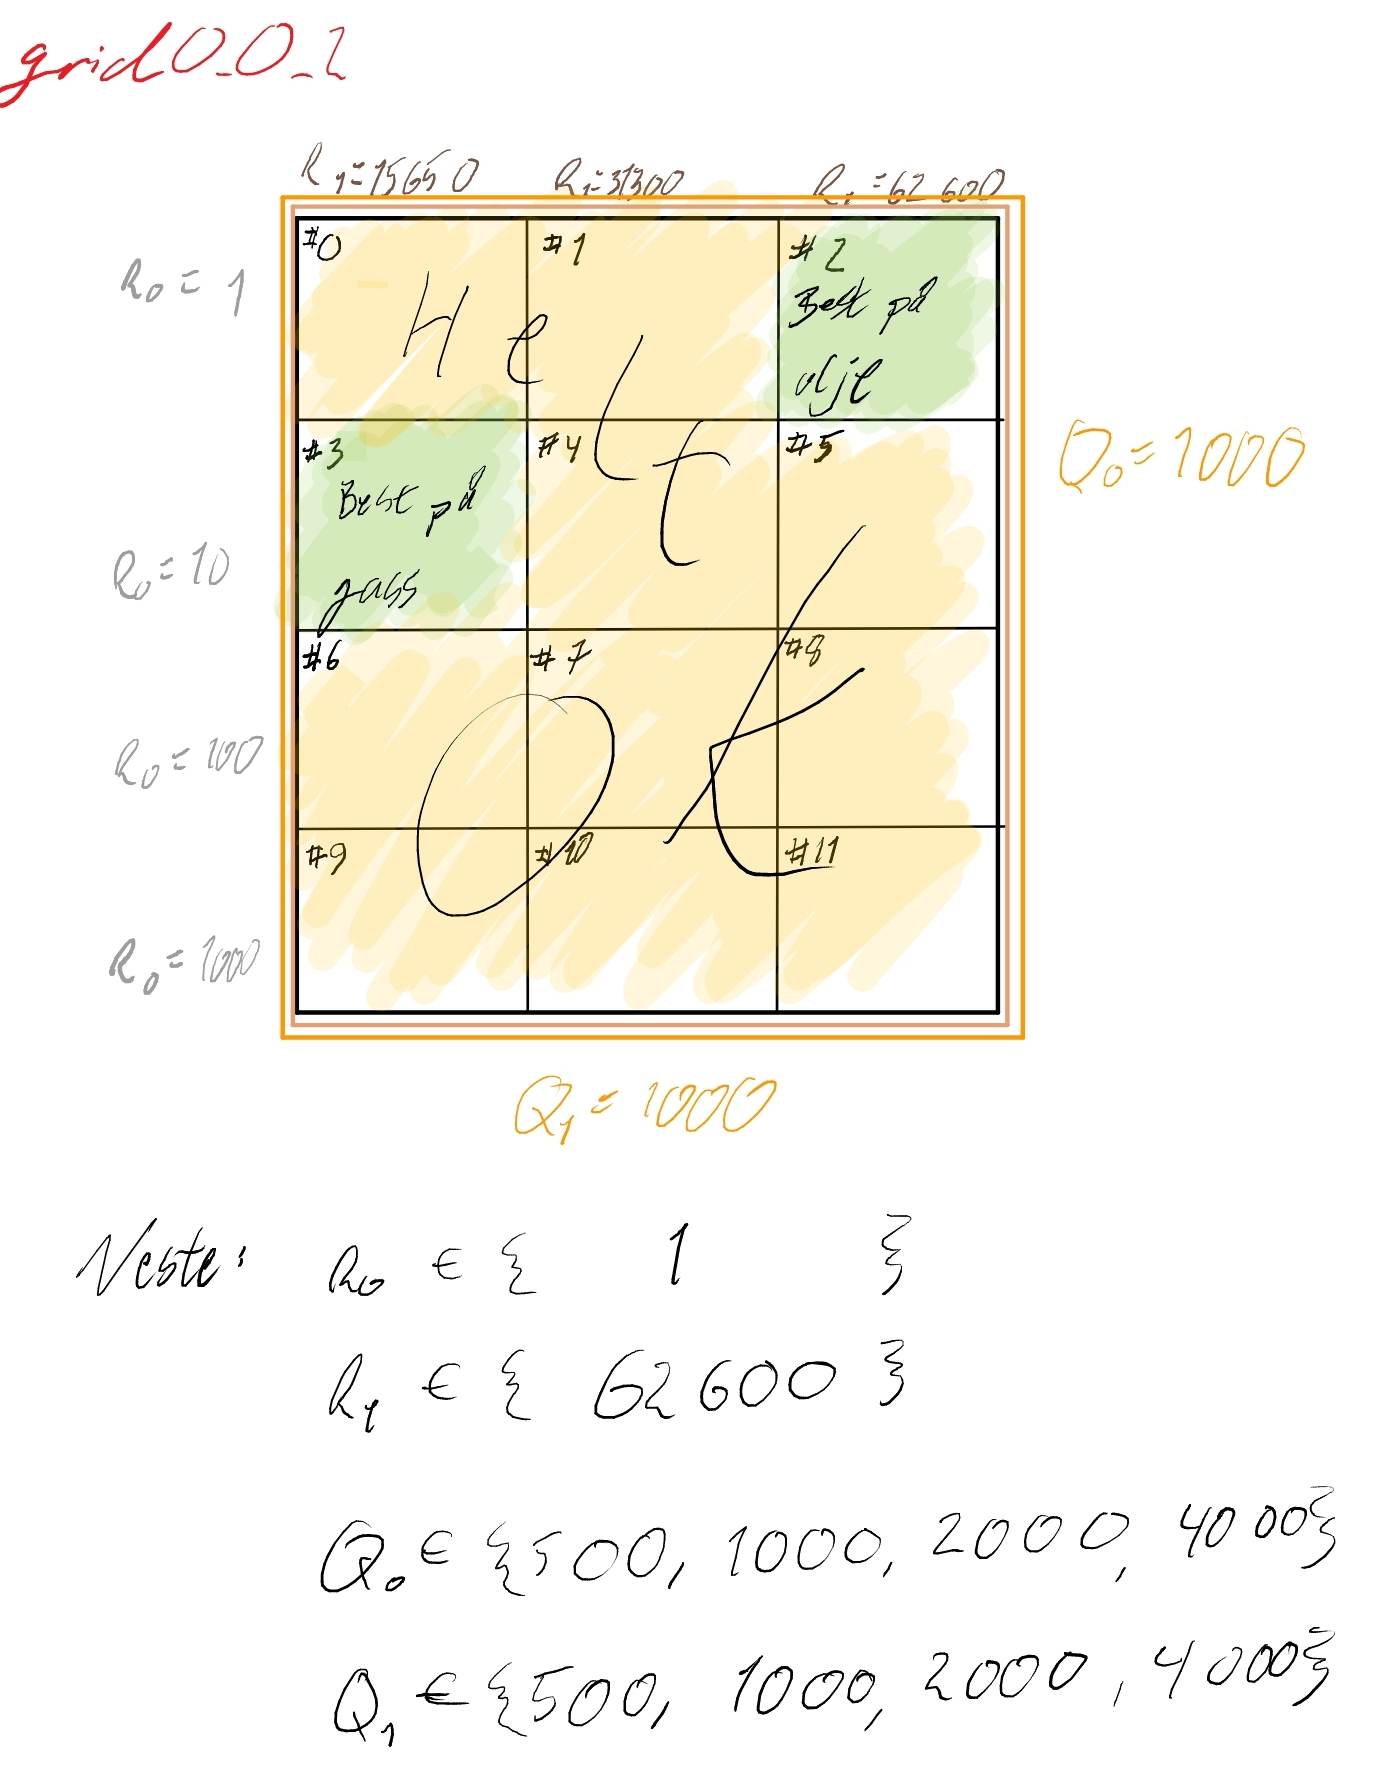 grid0_0_2
R₁=15650 R₁=31300 R₁=62600
R₀=1
#0 #1 #2
Best på
olje
Helt
R₀=10
#3 #4 #5
Best på
gass
Q₀=1000
R₀=100
#6 #7 #8
ok
R₀=1000
#9 #10 #11
Q₁=1000
Neste: R₀ ∈ { 1 }
R₁ ∈ { 62600 }
Q₀ ∈ {500, 1000, 2000, 4000}
Q₁ ∈ {500, 1000, 2000, 4000}